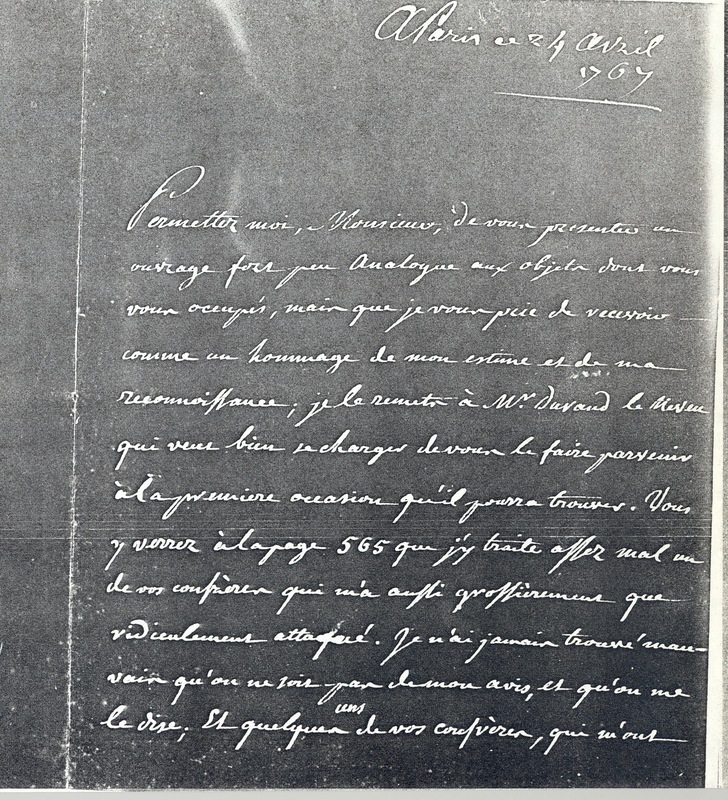 A Paris ce 24 avril
1767
Permettez moi, Monsieur, de vous presenter un
ouvrage fort peu Analogue aux objets dont vous
vous occupés, mais que je vous prie de recevoir
comme un hommage de mon estime et de ma
reconnoissance; je le remets à Mr. Durand le Neveu
qui veut bien se charger de vous le faire parvenir
à la premiere occasion qu'il pourra trouver. Vous
y verrez à la page 565 que j'y traite assez mal un
de vos confrères qui m'a aussi grossièrement que
ridiculement attaqué. Je n'ai jamais trouvé mau-
vais qu'on ne soit pas de mon avis, et qu'on me
le dise; Et quelques uns de vos confrères, qui m'ont